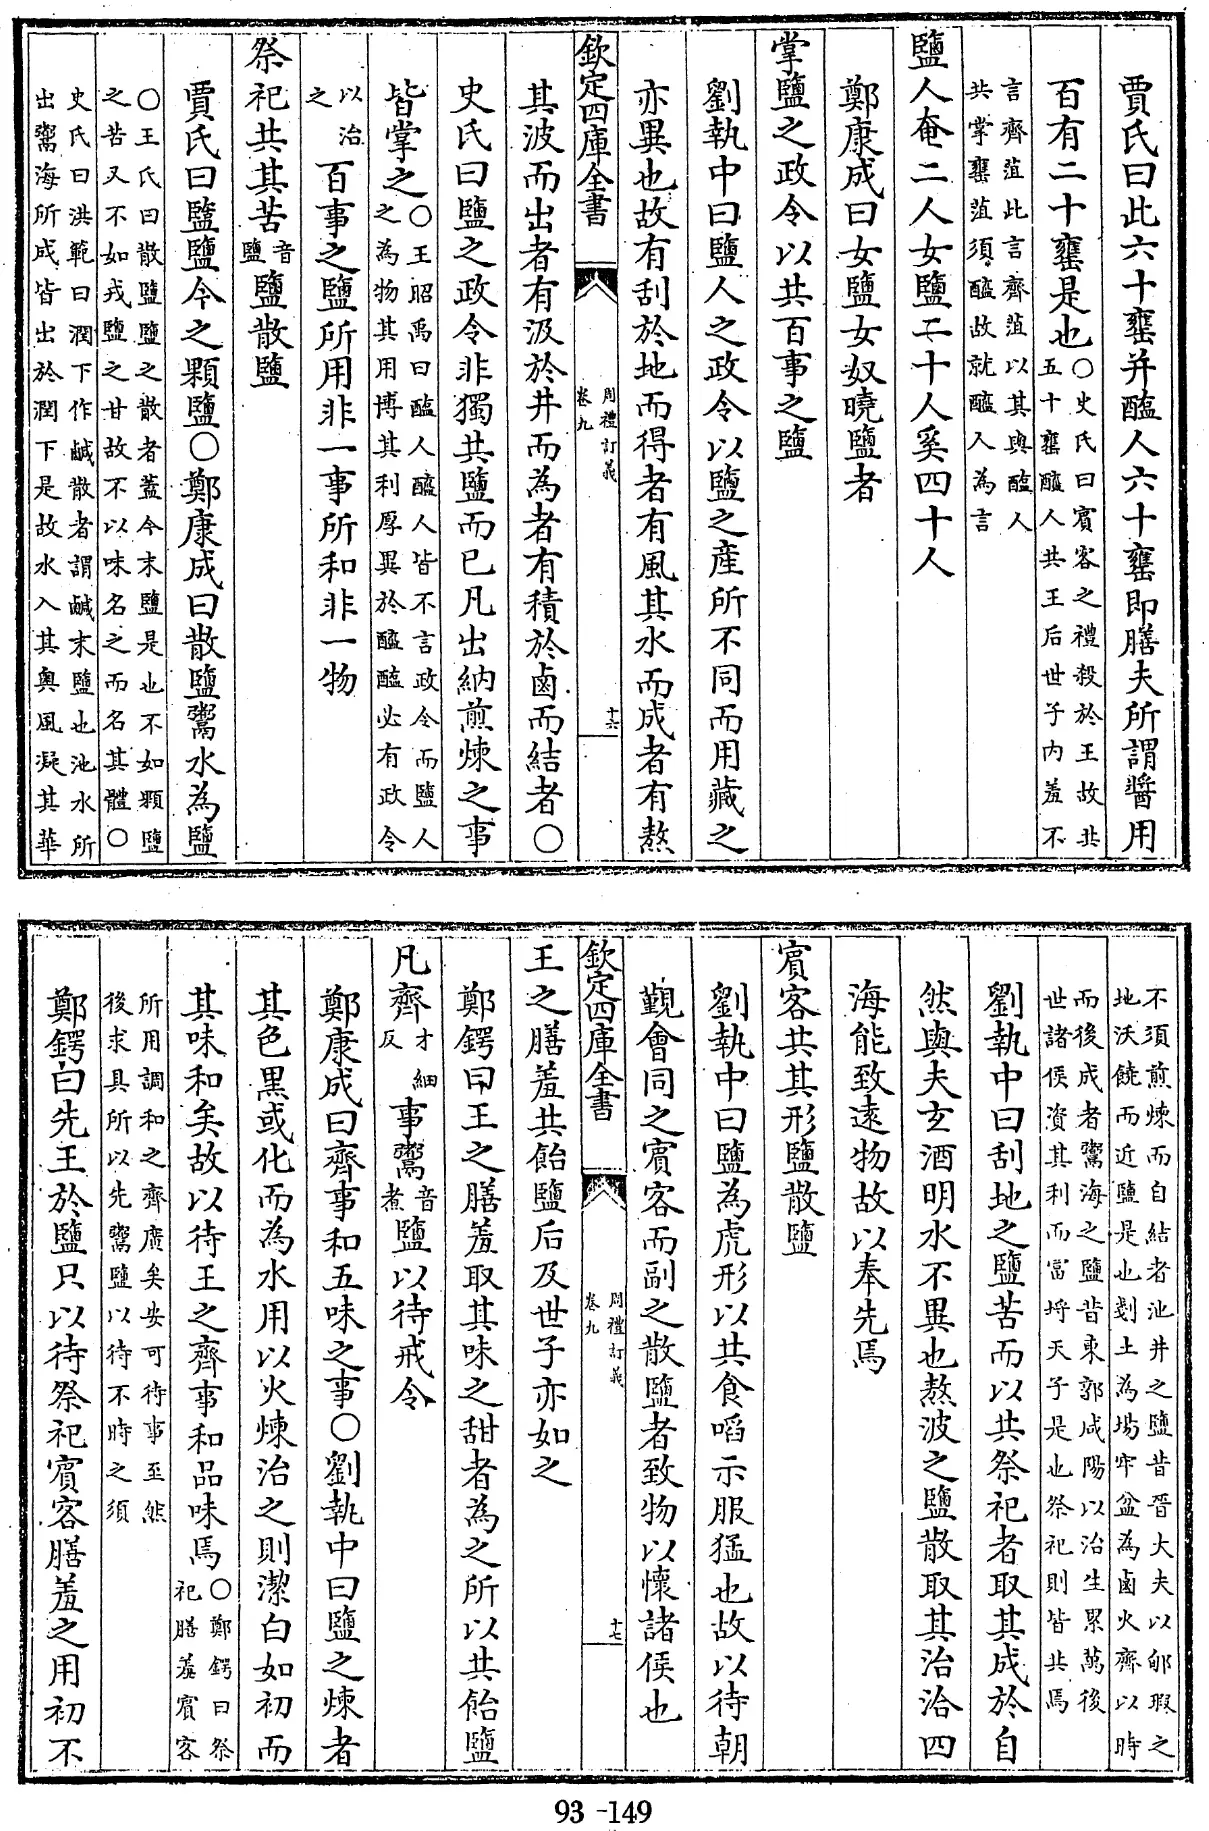 賈氏曰此六十罋并醢人六十罋即膳夫所謂醬用
百有二十罋是也○史氏曰賓客之禮殺於王故共
五十罋醯人共王后世子内羞不
言齊菹此言齊菹以其與醢人
共掌罋菹須醯故就醯人為言
鹽人奄二人女鹽二十人奚四十人
鄭康成曰女鹽女奴曉鹽者
掌鹽之政令以共百事之鹽
劉執中曰鹽人之政令以鹽之産所不同而用藏之
亦異也故有刮於地而得者有風其水而成者有熬
欽定四庫全書
周禮訂義
卷九
十六
其波而出者有汲於井而為者有積於鹵而結者○
史氏曰鹽之政令非獨共鹽而已凡出納煎煉之事
皆掌之○王昭禹曰醢人醯人皆不言政令而鹽人
之為物其用博其利厚異於醯醢必有政令
以治
之
百事之鹽所用非一事所和非一物
祭祀共其苦音
鹽
鹽散鹽
賈氏曰鹽鹽今之顆鹽○鄭康成曰散鹽鬻水為鹽
○王氏曰散鹽鹽之散者蓋今末鹽是也不如顆鹽
之苦又不如戎鹽之甘故不以味名之而名其體○
史氏曰洪範曰潤下作鹹散者謂鹹末鹽也池水所
出鬻海所成皆出於潤下是故水入其奥風凝其華
不須煎煉而自結者池井之鹽昔晋大夫以郇瑕之
地沃饒而近鹽是也刬土為塲牢盆為鹵火齊以時
而後成者鬻海之鹽昔東郭咸陽以治生累萬後
世諸侯資其利而富埒天子是也祭祀則皆共焉
劉執中曰刮地之鹽苦而以共祭祀者取其成於自
然與夫玄酒明水不異也熬波之鹽散取其治洽四
海能致逺物故以奉先焉
賓客共其形鹽散鹽
劉執中曰鹽為虎形以共食啗示服猛也故以待朝
覲會同之賓客而副之散鹽者致物以懷諸侯也
欽定四庫全書
周禮訂義
卷九
十七
王之膳羞共飴鹽后及世子亦如之
鄭鍔曰王之膳羞取其味之甜者為之所以共飴鹽
凡齊才細
反
事鬻音
煮
鹽以待戒令
鄭康成曰齊事和五味之事○劉執中曰鹽之煉者
其色黑或化而為水用以火煉治之則潔白如初而
其味和矣故以待王之齊事和品味焉○鄭鍔曰祭
祀膳羞賓客
所用調和之齊廣矣安可待事至然
後求具所以先鬻鹽以待不時之須
鄭鍔曰先王於鹽只以待祭祀賓客膳羞之用初不
93-149